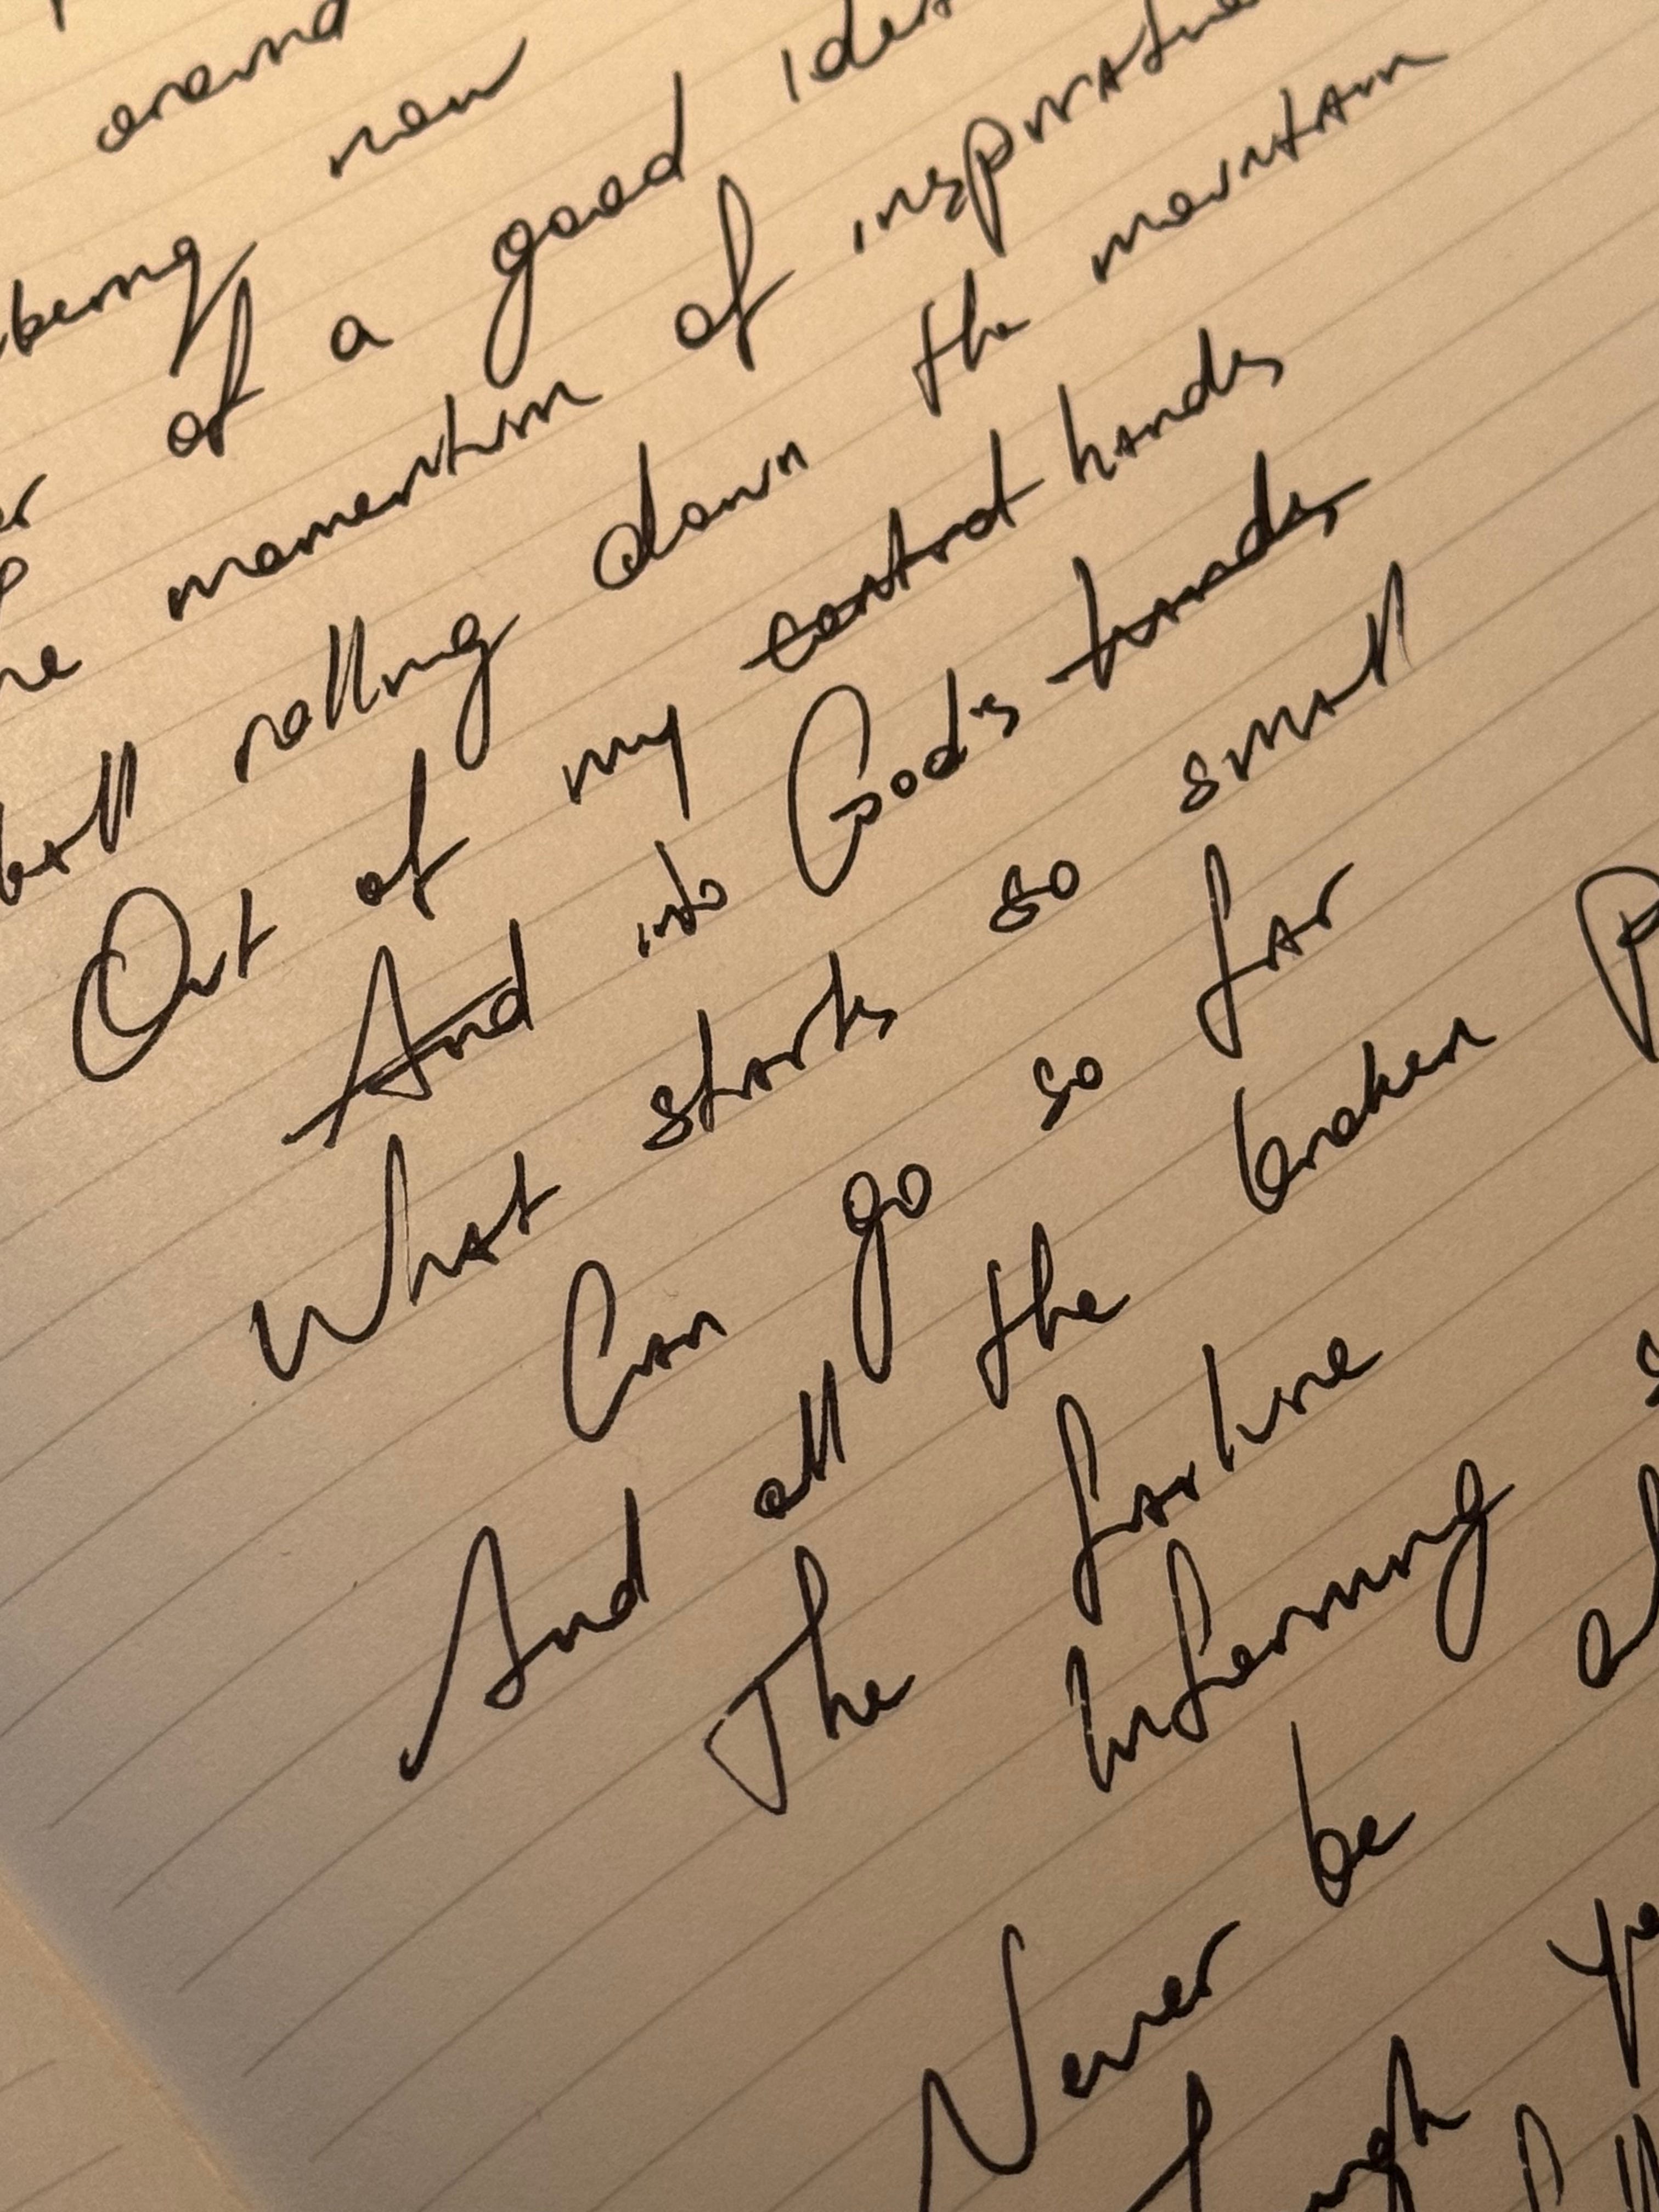 around
being new
of a good idea
momentum of inspiration
rolling down the mountain
Out of my control hands
And into God's hands
What starts so small
Can go so far
And all the broken
The fortune
Informing
Never be